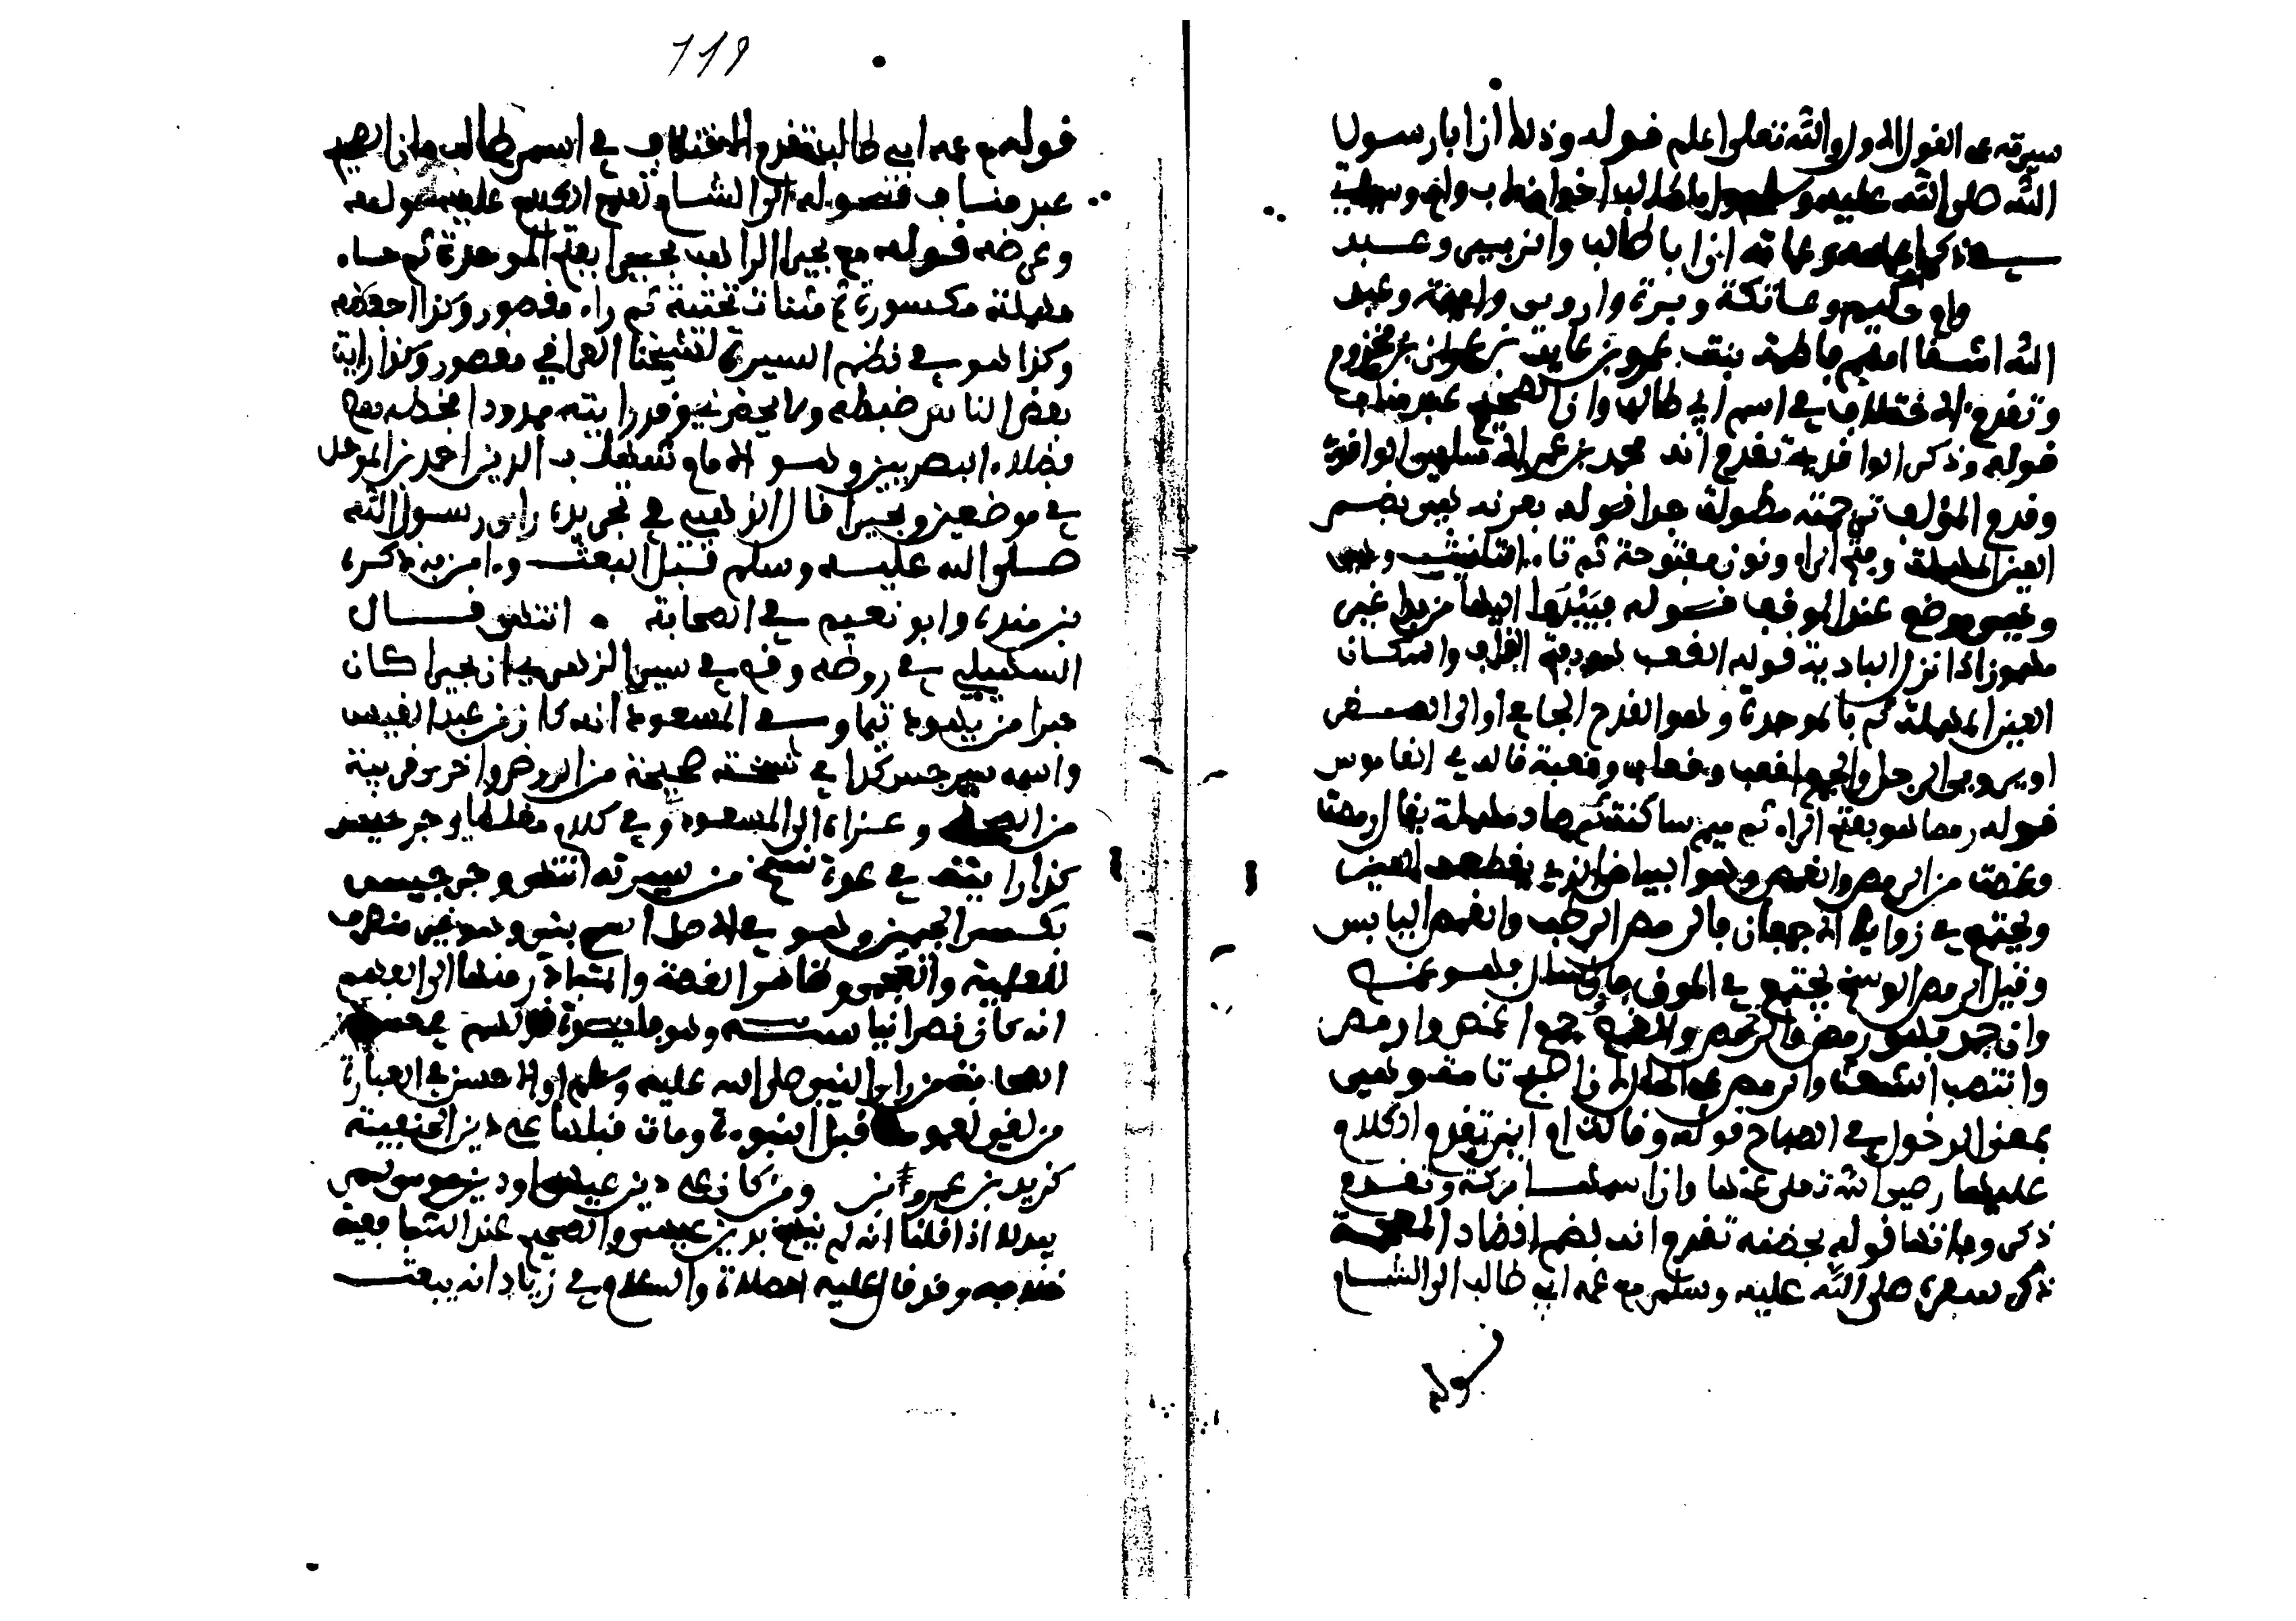 سيرته عن القول الاول والله تعلى اعلم قوله وذلك ان ابا رسول
الله صلى الله عليه وسلم وابا طالب اخوان لاب وام وسياتي
في ذكر اعمامه وعماته ان ابا طالب والزبير وعبد
وام حكيم وعاتكة وبرة واروى واميمة وعبد
الله اشقا امهم فاطمة بنت عمرو بن عايذ بن عمران بن مخزوم
وتقدم الاختلاف في اسم ابي طالب وان الصحيح عبد مناف
قوله وذكر الواقدي تقدم انه محمد بن عمر الاسلمي الواقدي
وقدم المؤلف ترجمته مطولة جدا قوله بعرنة هي بضم
العين المهملة وفتح الراء ونون مفتوحة ثم تاء التانيث وهي
موضع عند الموقف قوله اليها من بدا غير
مهموز اذا نزل البادية قوله القعب هو بفتح القاف واسكان
العين المهملة ثم بالموحدة وهو القدح الجافي او الى الصغر
او يروي الرجل والجمع اقعب وقعاب وقعبة قاله في القاموس
قوله رمصا هو بفتح الراء ثم ميم ساكنة ثم صاد مهملة يقال رمصا
وغمصا من الرمص والغمص وهو البياض الذي تقطعه العين
ويجتمع في زوايا الاجفان فالرمص الرطب والغمص اليابس
وقيل الرمص الوسخ يجتمع في الموق فان سال فهو غمص
وان جمد فهو رمص جمع اغمص وارمص
وانتصب على الحال لان اصبح تامة وهي
بمعنى الدخول في الصباح قوله وقالت ام ايمن تقدم الكلام
عليها رضي الله تعلى عنها وان اسمها بركة وتقدم
ذكر وفاتها قوله بحضنه تقدم انه بضم الضاد المعجمة
ذكر سفره صلى الله عليه وسلم مع عمه ابي طالب الى الشام
قوله
119
قوله مع عمه ابي طالب تقدم الاختلاف في اسم ابي طالب وان الصحيح
عبد مناف قوله الى الشام تقدم الكلام عليه طوله
وعرضه قوله مع بحيرا الراهب بحيرا بفتح الموحدة ثم حاء
مهملة مكسورة ثم مثناة تحتية ثم راء مقصور وكذا احفظه
وكذا هو في نظم السيرة لشيخنا العراقي مقصور وكذا رايت
بعض الناس ضبطه ولا يحضرني وقد رايته ممدودا بخط بعض
فضلاء البصريين وهو الامام شهاب الدين احمد بن الموصل
في موضعين وبحيرا قال الذهبي في تجريده راى رسول الله
صلى الله عليه وسلم قبل البعث وامن به ذكره
بن منده وابو نعيم في الصحابة . انتهى قال
السهيلي في روضه وقع في سير الزهري ان بحيرا كان
حبرا من يهود تيما وفي المسعودي انه كان من عبد القيس
واسمه سرجس كذا في نسخة صحيحة من الروض واخرى قريبة
من الصحة وعزاه الى المسعودي وفي كلام مغلطاي جرجيس
كذا رايته في عدة نسخ من سيرته انتهى وجرجيس
بكسر الجيمين وهو في الاصل اسم نبي وهو غير منصرف
للعلمية والعجمة وظاهر القصة والمتبادر منها الى الفهم
انه كان نصرانيا
الصحابة من راى النبي صلى الله عليه وسلم والاحسن في العبارة
من لقي قبل النبوءة ومات قبلها على دين الحنيفية
كزيد بن عمرو بن ومن كان على دين عيسى او دين موسى
يبدلا اذا قلنا انه لم ينسخ بدين عيسى والصحيح عند الشافعية
وقد قال عليه الصلاة والسلام في زياد انه يبعث